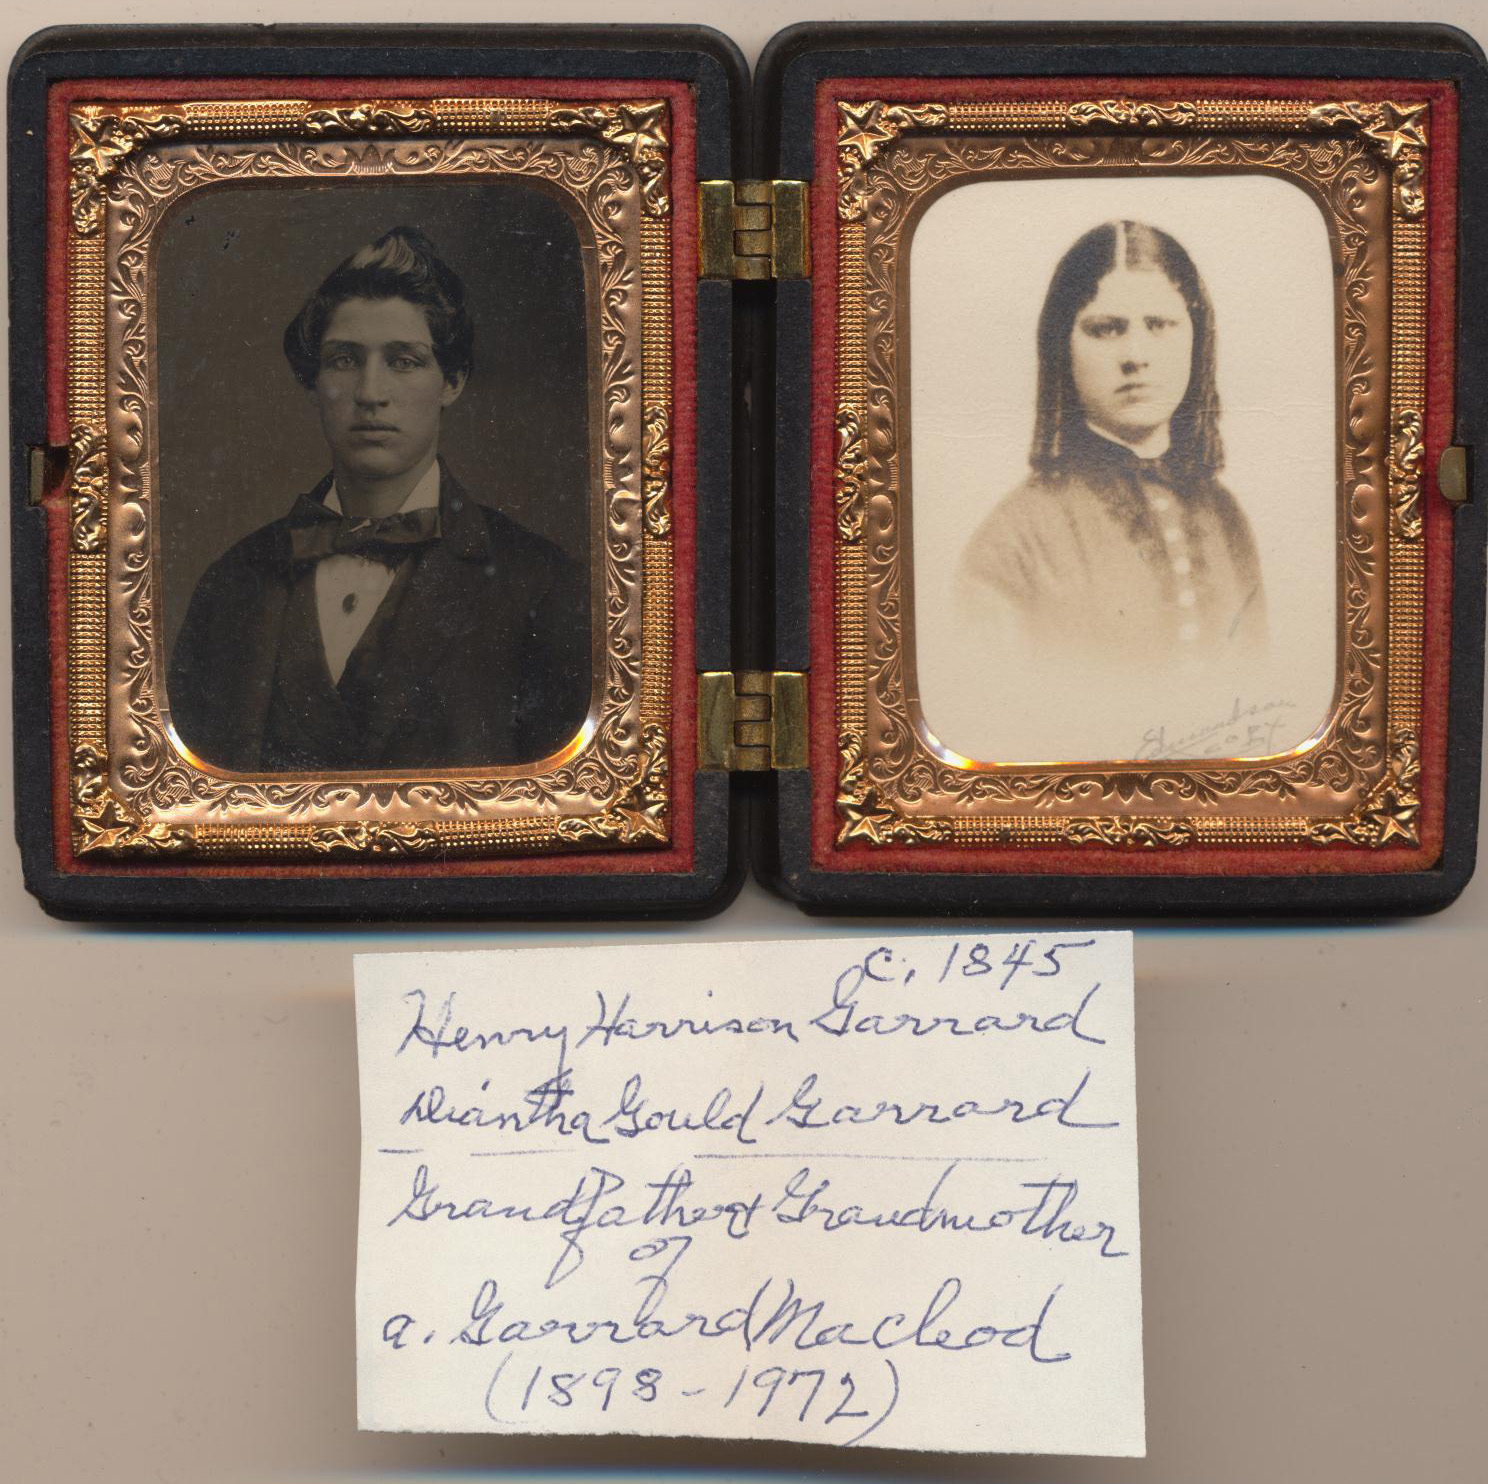 Edmondson
c. 1845
Henry Harrison Garrard
Diantha Gould Garrard
Grandfather & Grandmother
of
a. Garrard Macleod
(1898-1972)